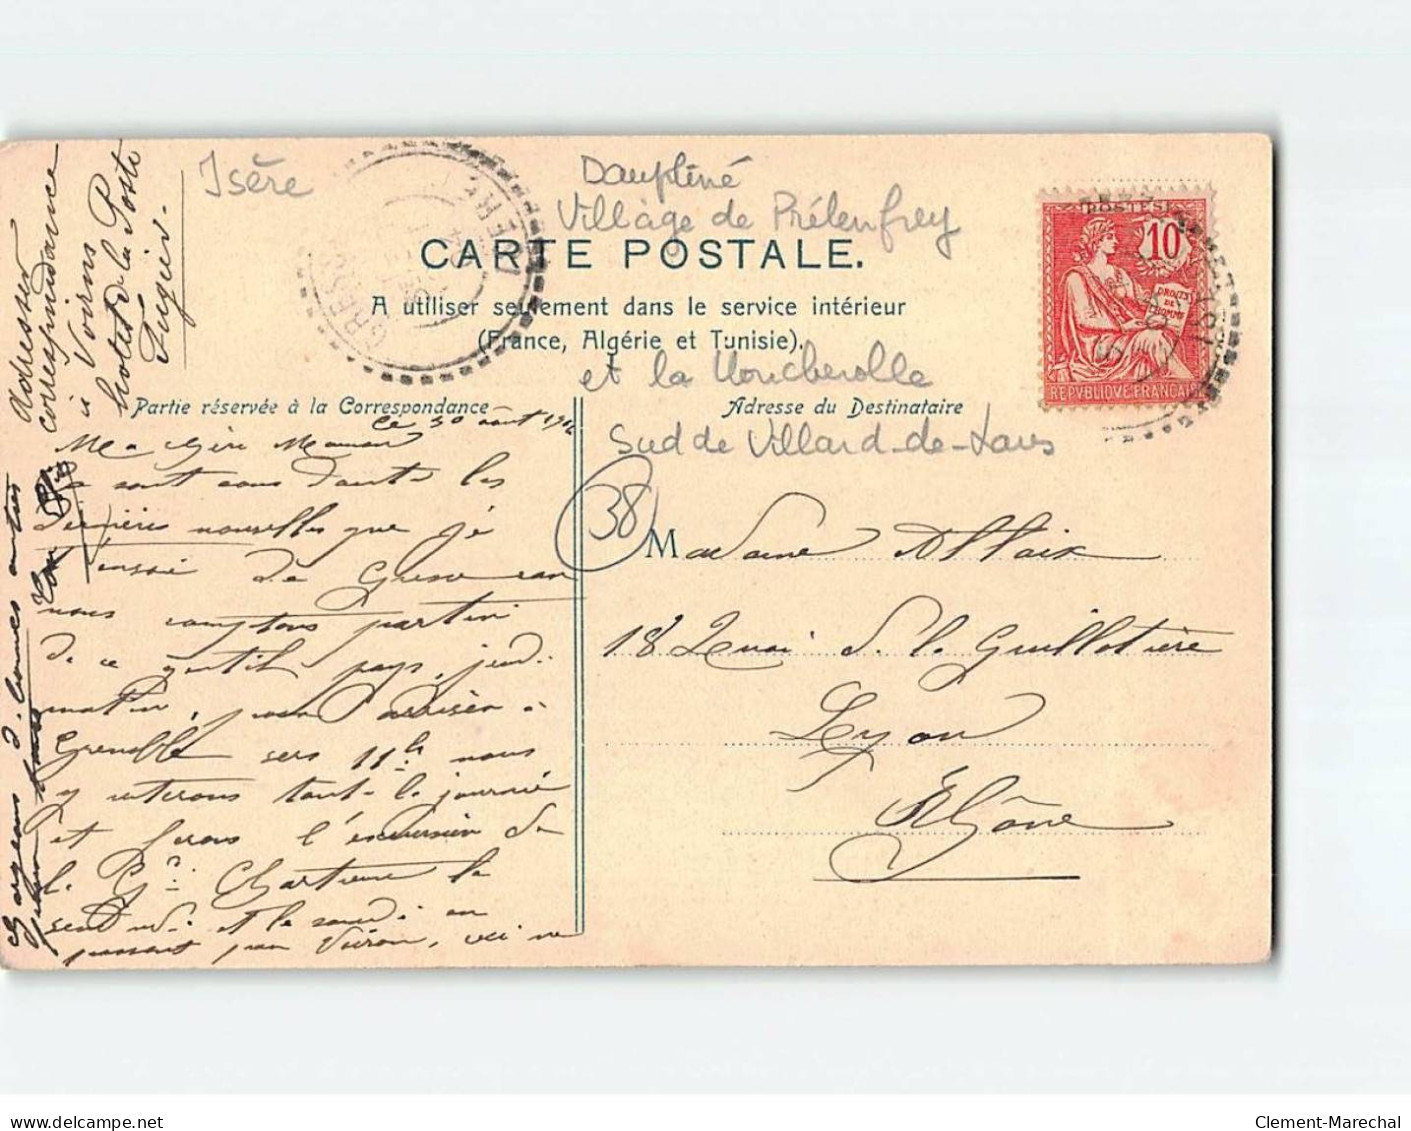 Isère
Dauphiné
Village de Prélenfrey
CARTE POSTALE.
A utiliser seulement dans le service intérieur
(France, Algérie et Tunisie).
et la Moucherolle
Sud de Villard-de-Lans
Partie réservée à la Correspondance
Adresse du Destinataire
POSTES
10
DROITS DE L'HOMME
REPVBLIQVE FRANÇAISE
GRESSE
ISERE
38
Madame Allaix
18 Quai d. l. Guillotière
Lyon
Rhône
le 30 août
Ma Chère Maman
sont sans doute les
dernières nouvelles que je
de Gresse car
nous comptons partir
de ce gentil pays, jeudi
matin, pour arriver à
Grenoble vers 11h nous
y resterons toute la journée
et ferons l'excursion de
la Gde Chartreuse le
vendredi et le samedi en
passant par Voiron,
Adresser
correspondance
à Voiron
hotel de la Poste